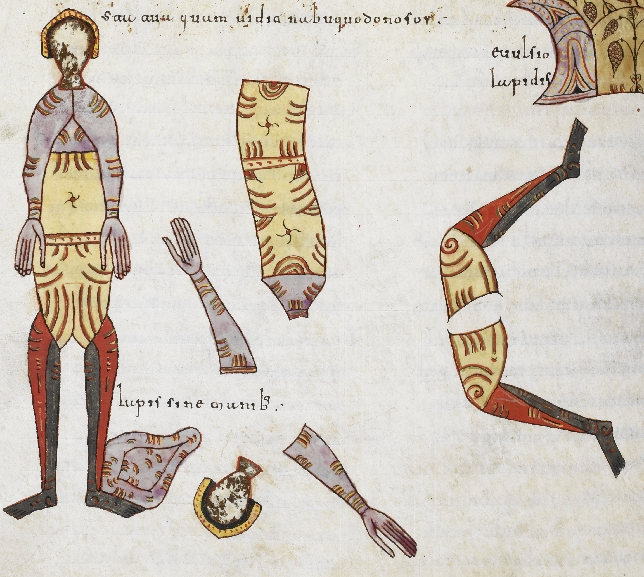 statuam quam uidit nabuquodonosor.
euulsio
lapidis
lapis sine manibus.